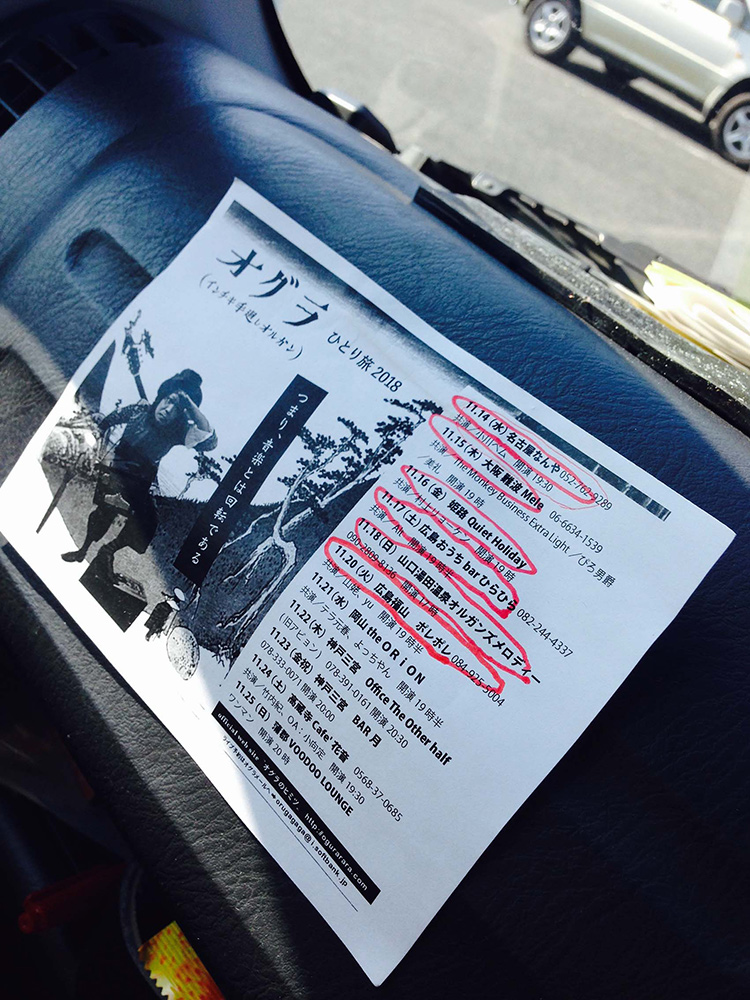 オグラ
(インチキ手廻しオルガン)
ひとり旅 2018
つまり、音楽とは回転である
11.14 (水) 名古屋なんや 052-762-9289
共演/小川ペム 開演 19:30
11.15 (木) 大阪 難波 Mele 06-6634-1539
共演/The Monkey Business Exra Light /ぴろ男爵
/美礼 開演 19時
11.16 (金) 姫路 Quiet Holiday
共演/村上リョーケン 開演 19時
11.17 (土) 広島おうち bar ひらひら 082-244-4337
共演/Ah! 開演 19時半
11.18 (日) 山口湯田温泉オルガンズメロディー
開演 17時
11.20 (火) 広島福山 ポレポレ 084-925-5004
共演/山鹿、yu 開演 19時半
11.21 (水) 岡山 the O R i O N
共演/テラ元春、よっちゃん 開演 19時半
11.22 (木) 神戸三宮 Office The Other half
(旧アビョン) 078-391-0161 開演 20:30
11.23 (金祝) 神戸三宮 BAR 月
078-333-0071 開演 20:00
11.24 (土) 高蔵寺 Cafe' 花音 0568-37-0685
共演/竹内紀、OA:小向定 開演 19:30
11.25 (日) 蒲郡 VOODOO LOUNGE
ワンマン 開演 20時
official web site オグラのヒミツ。 http://ogurarara.com
ライブ予約はオグラメールへ➡orugagaga@i.softbank.jp